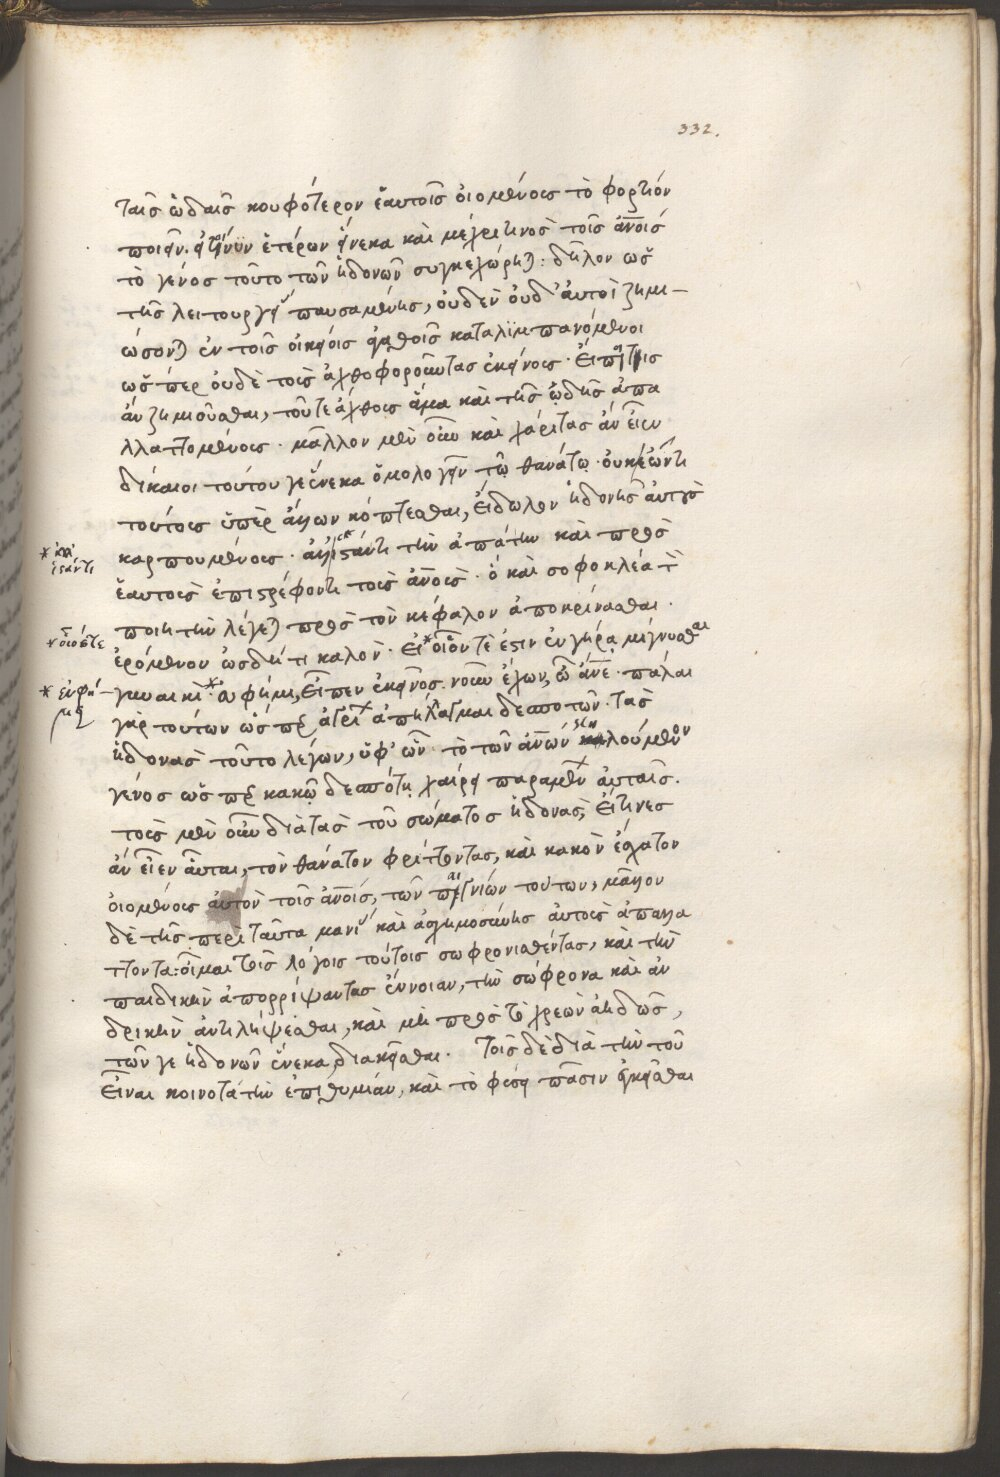 332.
ταῖς ὠδαῖς κουφότερον ἑαυτοῖς οἰομένοις τὸ φορτίον
ποιεῖν. εἰ τοίνυν ἑτέρων εἵνεκα καὶ μέχρι τινὸς τοῖς ἀνοις
τὸ γένος τοῦτο τῶν ἡδονῶν συγκεχώρηται: δῆλον ὡς
τῆς λειτουργίας παυσαμένης, οὐδὲν οὐδ' αὐτοὶ ζημι–
ώσονται ἐν τοῖς οἰκείοις ἀγαθοῖς καταλιμπανόμενοι
ὥσπερ οὐδὲ τοὺς ἀχθοφοροῦντας ἐκείνους. εἴποι τις
ἂν ζημιοῦσθαι, τοῦ τε ἄχθους ἅμα καὶ τῆς ὠδῆς ἀπα
λλαττομένους. μᾶλλον μὲν οὖν καὶ χάριτας ἂν εἶεν
δίκαιοι τούτου γε ἕνεκα ὁμολογεῖν τῷ θανάτῳ. οὐκ ἐῶντι
τούτους ὑπὲρ ἄλλων κόπτεσθαι, εἴδωλον ἡδονῆς
καρπουμένους. τὴν ἀπάτην καὶ πρὸς
ἑαυτοὺς ἐπιστρέφοντι τοὺς ἀνους. ὃ καὶ σοφοκλέα τ
ποιητὴν λέγεται πρὸς τὸν κέφαλον ἀποκρίνασθαι.
ἐρόμενον ὡσδή τι καλὸν. εἰ* οἷόν τέ ἐστιν ἐν γήρᾳ μίγνυσθαι
γυναικὶ.* φημι, εἶπεν ἐκεῖνος νοῦν ἔχων, ὦ ἄνε. πάλαι
γὰρ τούτων ὥσπερ ἀπήλλαγμαι δεσποτῶν. τὰς
ἡδονὰς τοῦτο λέγων, ὑφ' ὧν τὸ τῶν ἀνων λούμενον
γένος ὥσπερ κακῷ δεσπότῃ χαίρει παραμένον αὐταῖς.
τοὺς μὲν οὖν διὰ τὰς τοῦ σώματος ἡδονας, εἴτινες
ἂν εἶεν αὗται, τὸν θάνατον φρίττοντας, καὶ κακὸν ἔσχατον
οἰομένους αὐτὸν τοῖς ἀνοις, τῶν παιγνίων τούτων, μᾶλλον
δὲ τῆς περὶ ταῦτα μανίας καὶ ἀσχημοσύνης αὐτοὺς ἀπαλλα
ττοντα: οἶμαι τοῖς λόγοις τούτοις σωφρονισθέντας, καὶ τὴν
παιδικὴν ἀπορρίψαντας ἔννοιαν, τὴν σώφρονα καὶ ἀν
δρικὴν ἀντιλήψεσθαι, καὶ μὴ πρὸς τὸ χρεὼν ἀηδῶς,
τῶν γε ἡδονῶν ἕνεκα, διακεῖσθαι. Τοῖς δὲ διὰ τὴν τοῦ
εἶναι κοινοτάτην ἐπιθυμίαν, καὶ τὸ φύσει πᾶσιν ᾠκειῶσθαι
οἷός τε
* εὐφή–
μει